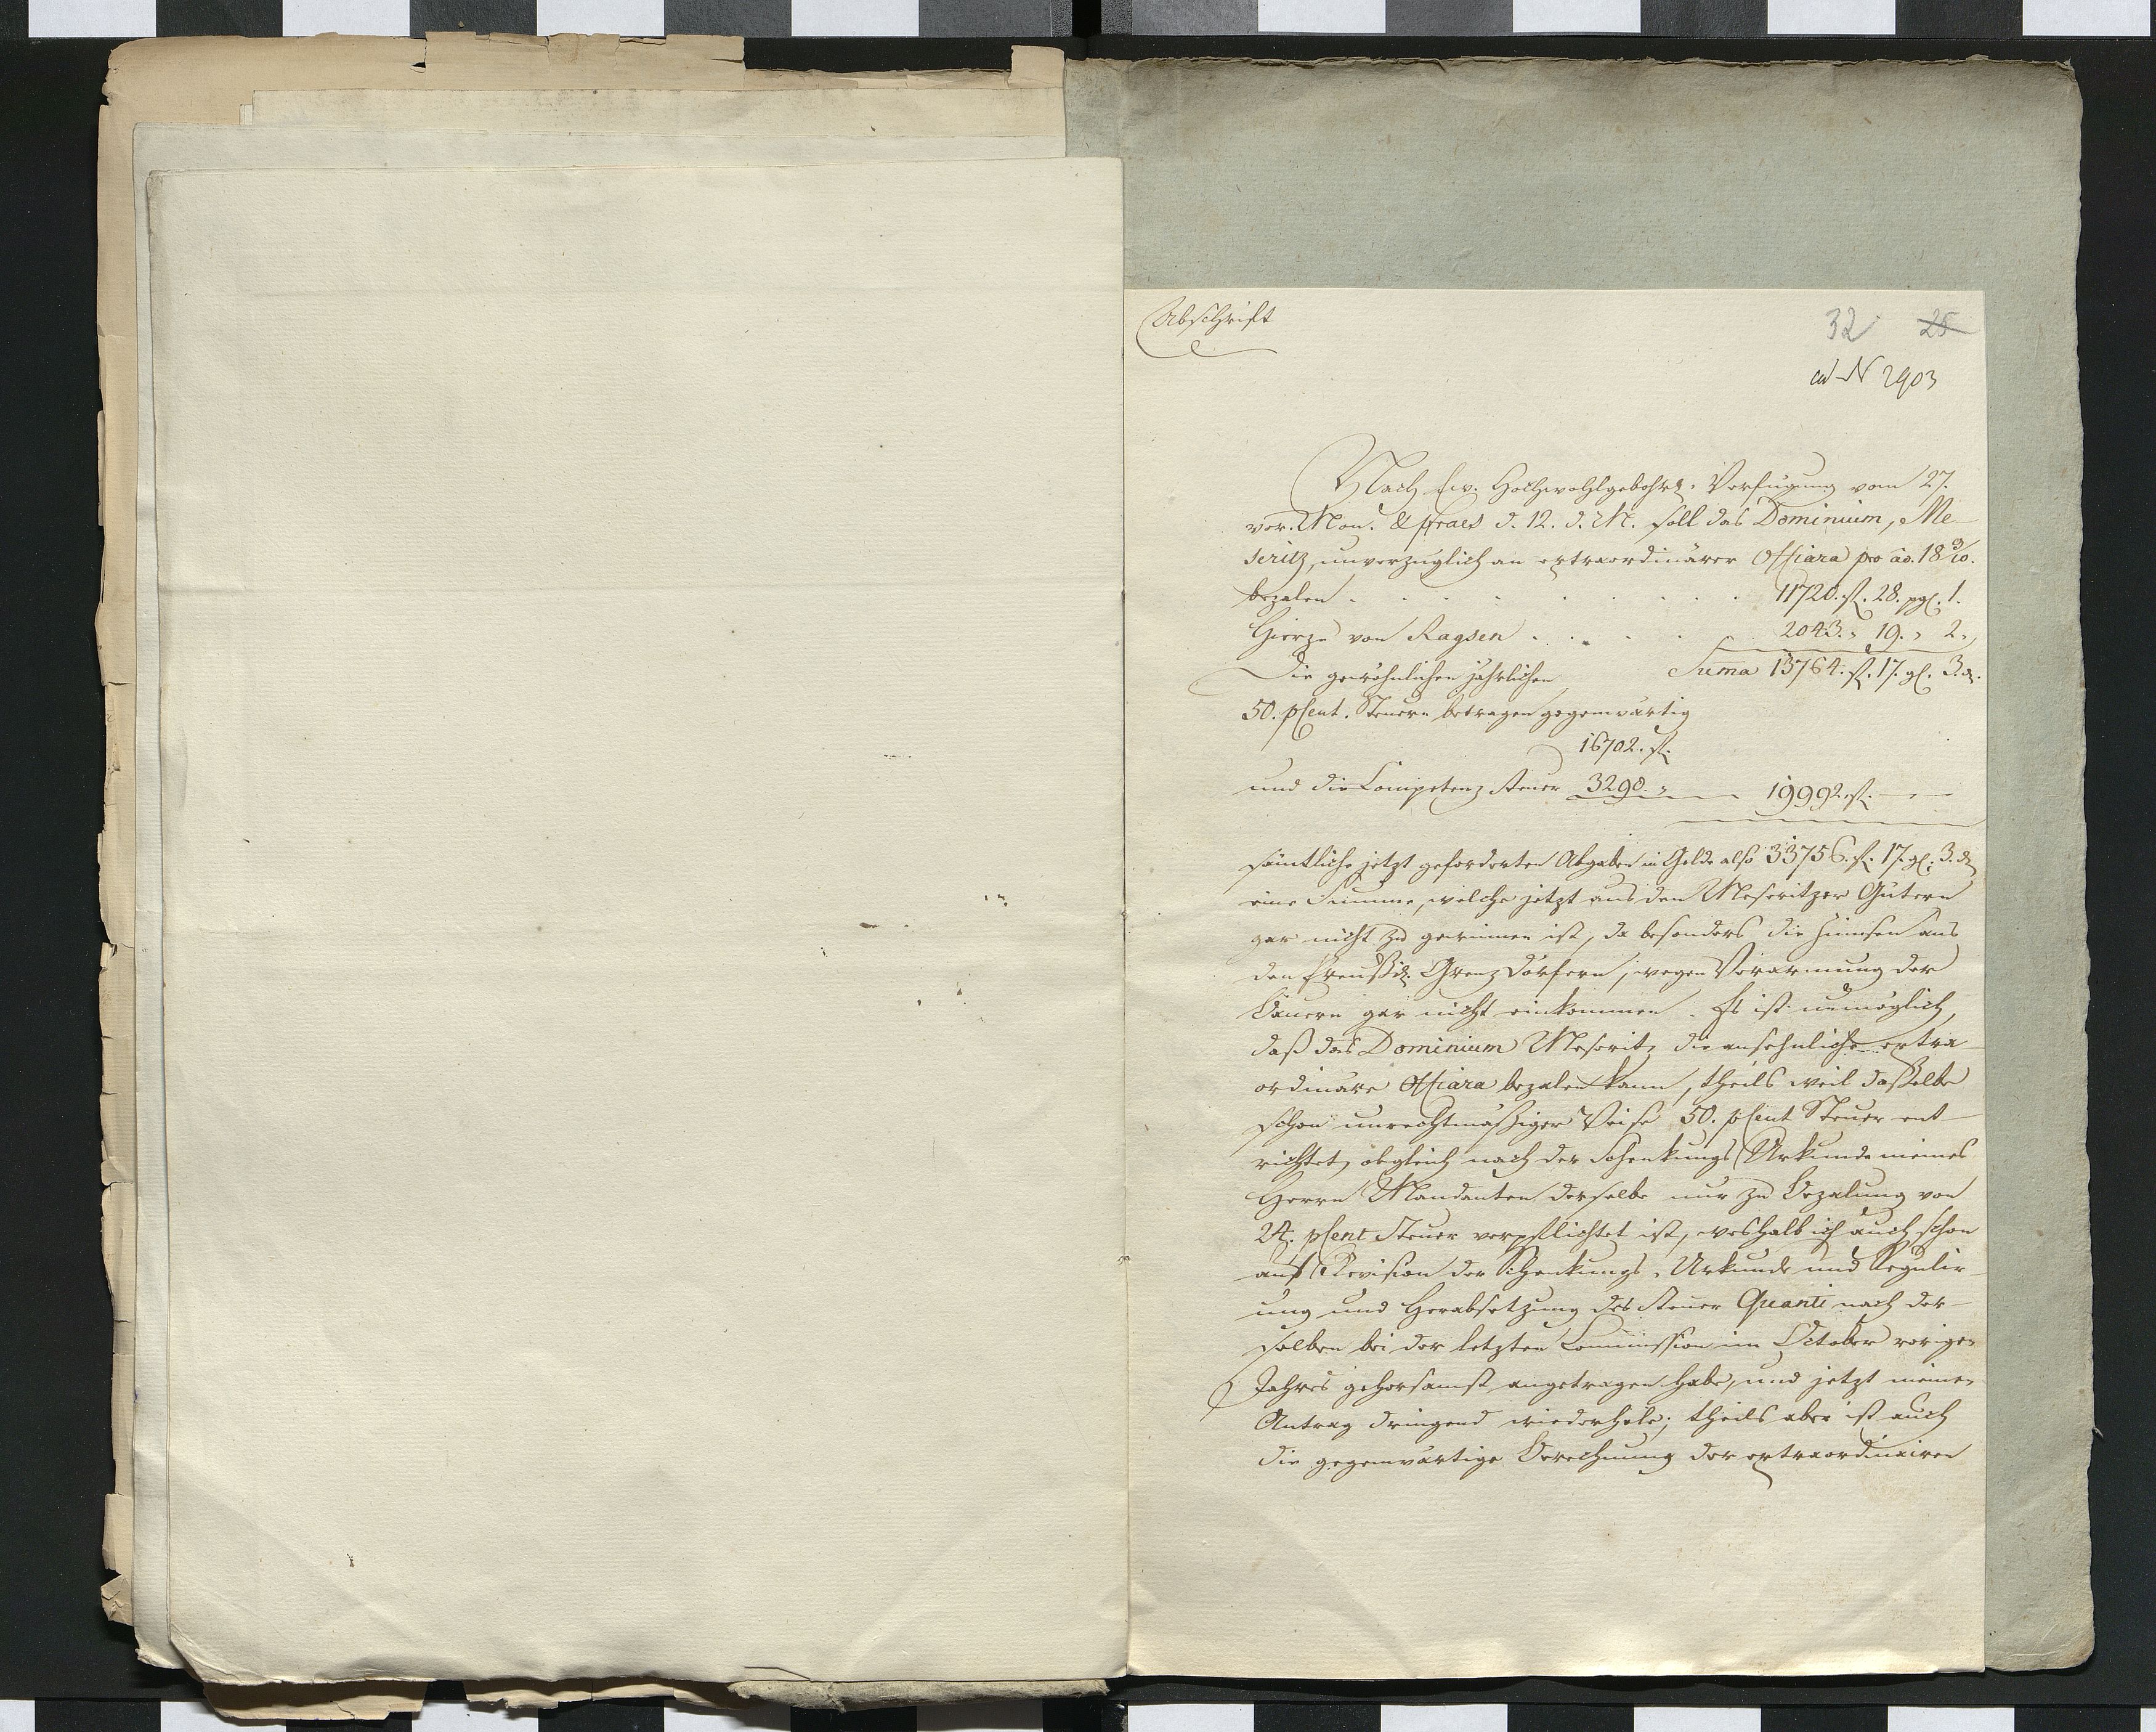 Abschrift
32 25
ad N 2903
Nach Ew. Hochwohlgebohrn. Verfügung vom 27.
vor. Mon. & praes d. 12. d. M. soll das Dominium, Me-
seritz, unverzüglich an extraordinärer Offiara pro ao. 18 9/10.
bezalen . . . . . . . . . 11720. fl. 28. pgl. 1.
Hierzu von Ragsen . . . . . 2043. " 19. " 2. "
Die gewöhnlichen jährlichen Suma 13764. fl. 17. gl. 3. d.
50. pCent. Steuern betragen gegenwärtig
16702. fl.
und die Competenz Steuer 3290. " — 19992. fl. — —
sämtliche jetzt geforderten Abgaben in Gelde also 33756. fl. 17. gl. 3. d.
eine Summe, welche jetzt aus den Meseritzer Gütern
gar nicht zu gewinnen ist, da besonders die Zinnsen aus
den Preußis. Grenz Dörfern, wegen Verarmung der
Bauern gar nicht einkommen. Es ist unmöglich,
daß das Dominium Meseritz die ansehnliche extra-
ordinäre Offiara bezalen kann, theils weil dasselbe
schon unrechtmäßiger Weise 50. pCent Steuer ent-
richtet, obgleich nach der Schenkungs Urkunde meines
Herrn Mandanten derselbe nur zu Bezalung von
24. pCent Steuer verpflichtet ist, weshalb ich auch schon
auf Revision der Schenkungs-Urkunde und Regulir-
ung und Herabsetzung des Steuer Quanti nach der-
selben bei der letzten Commission im October vorigen
Jahres gehorsamst angetragen habe, und jetzt meinen
Antrag dringend wiederhole; theils aber ist auch
die gegenwärtige Berechnung der extraordinairen